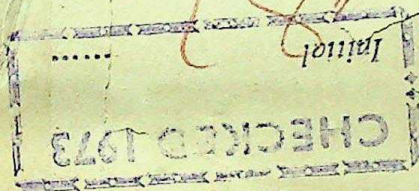 CHECKED 1973
Initial ......